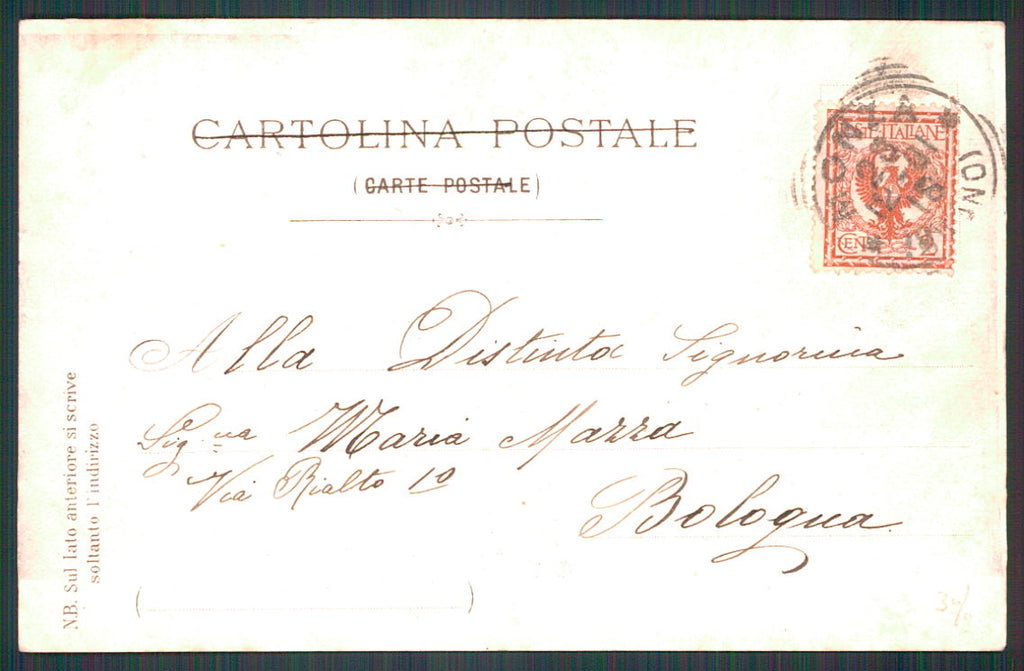 CARTOLINA POSTALE
(CARTE POSTALE)
POSTE ITALIANE
CENT. 2
MONZA
Alla Distinta Signorina
Sig.na Maria Mazza
Via Rialto 10
Bologna
N.B. Sul lato anteriore si scrive
soltanto l'indirizzo